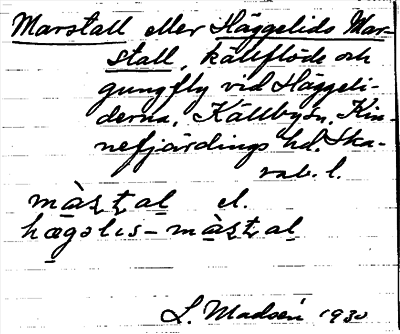 Marstall eller Häggelids Mar-
stall, källflöde och
gungfly vid Häggeli-
derna, Källbyån, Kin-
nefjärdings hd. Ska-
rab. l.
màʂʈal el.
hægəlis-màʂʈal
L. Madsén 1930